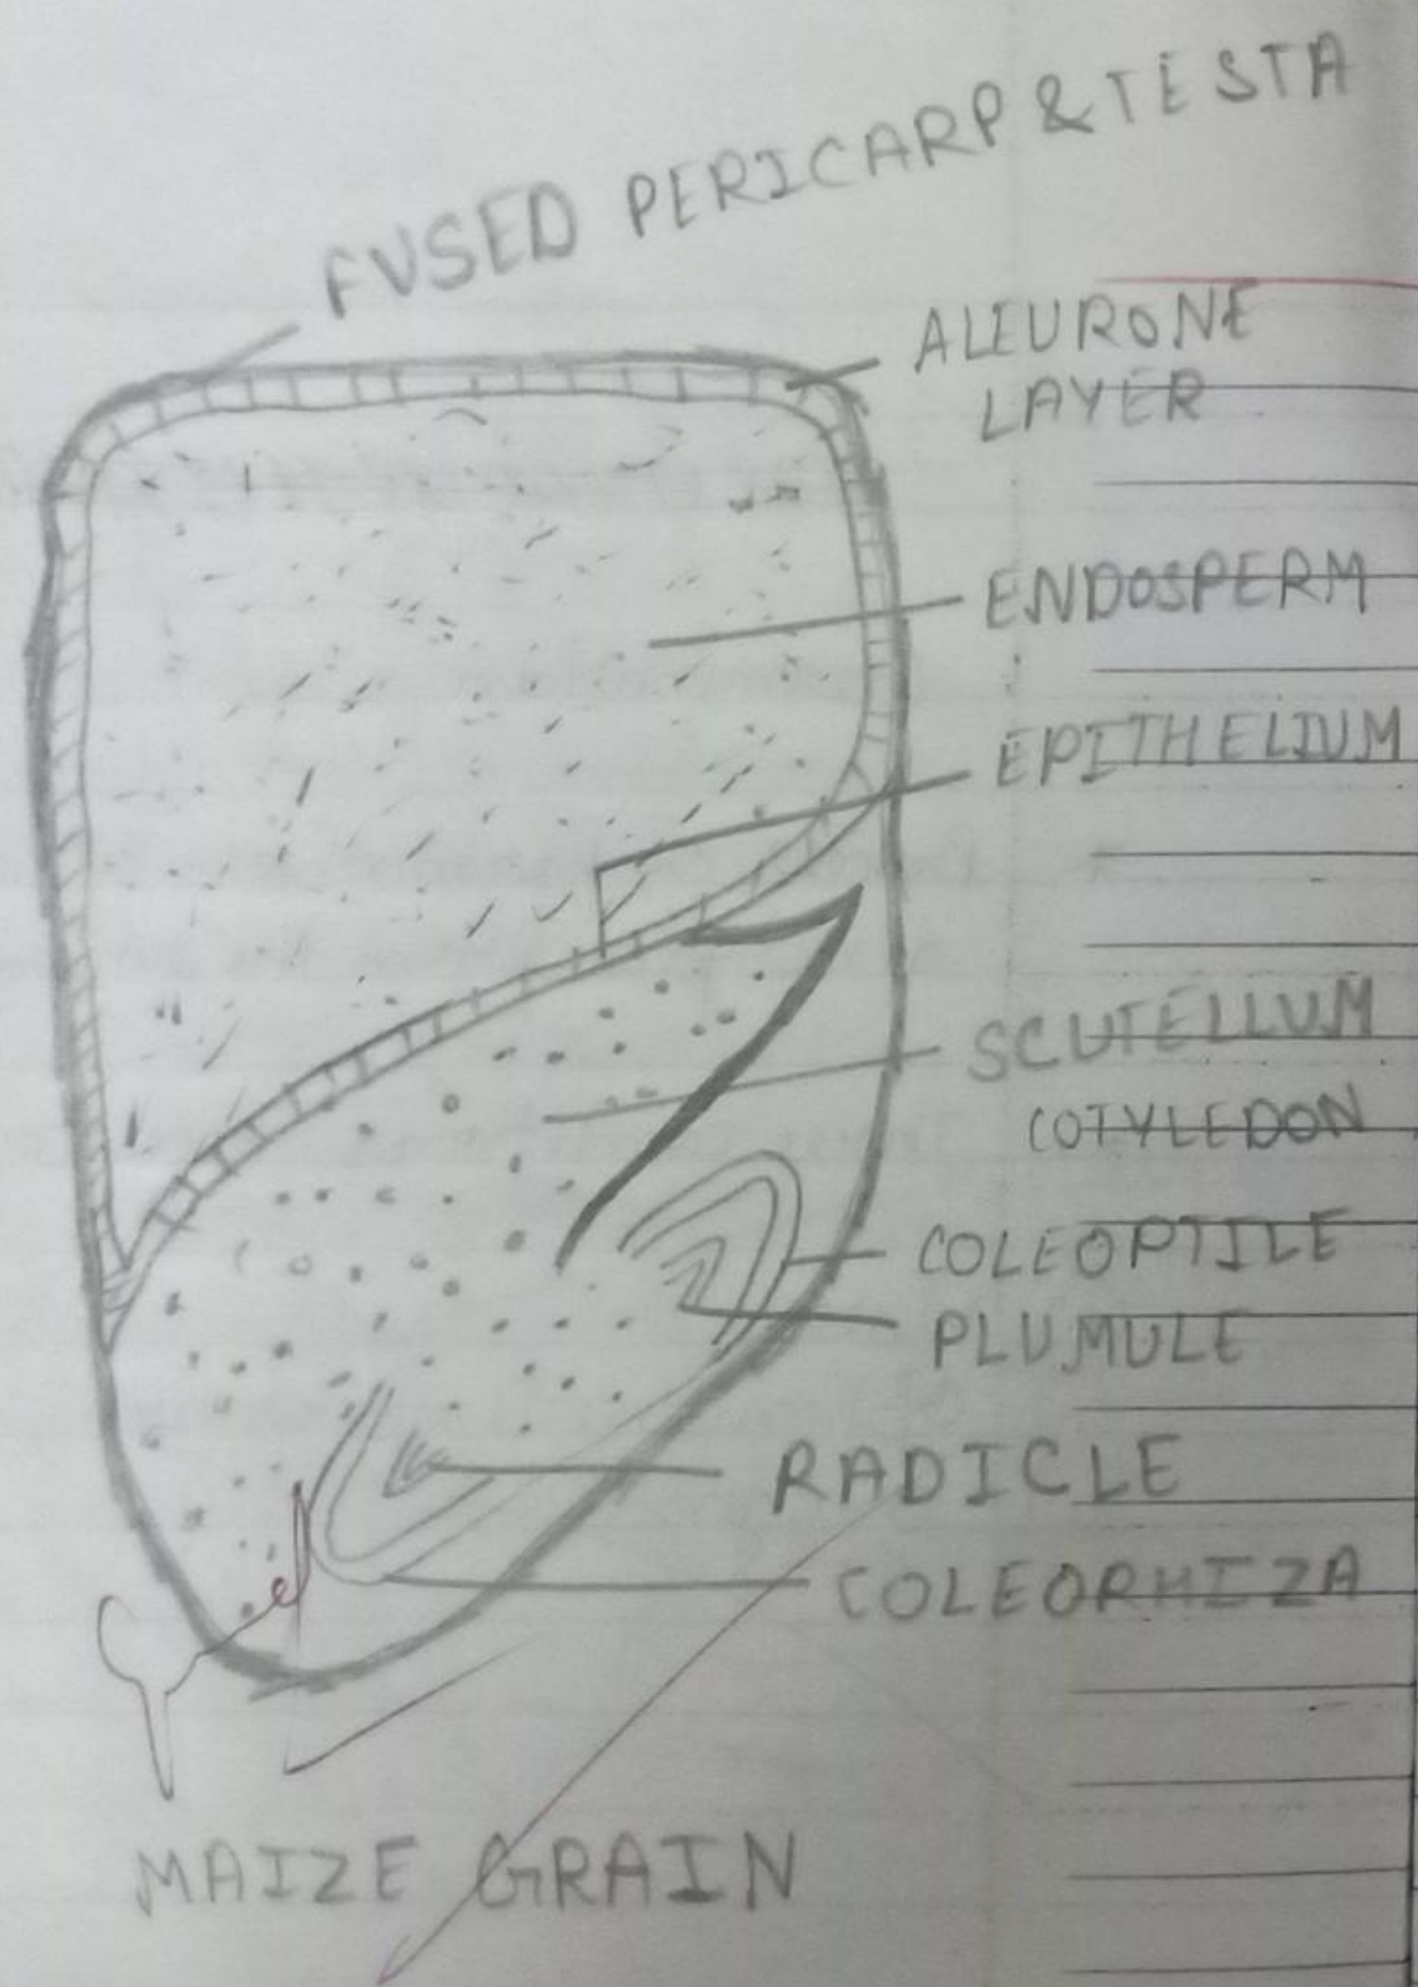 FUSED PERICARP & TESTA
ALEURONE
LAYER
ENDOSPERM
EPITHELIUM
SCUTELLUM
COTYLEDON
COLEOPTILE
PLUMULE
RADICLE
COLEORHIZA
MAIZE GRAIN